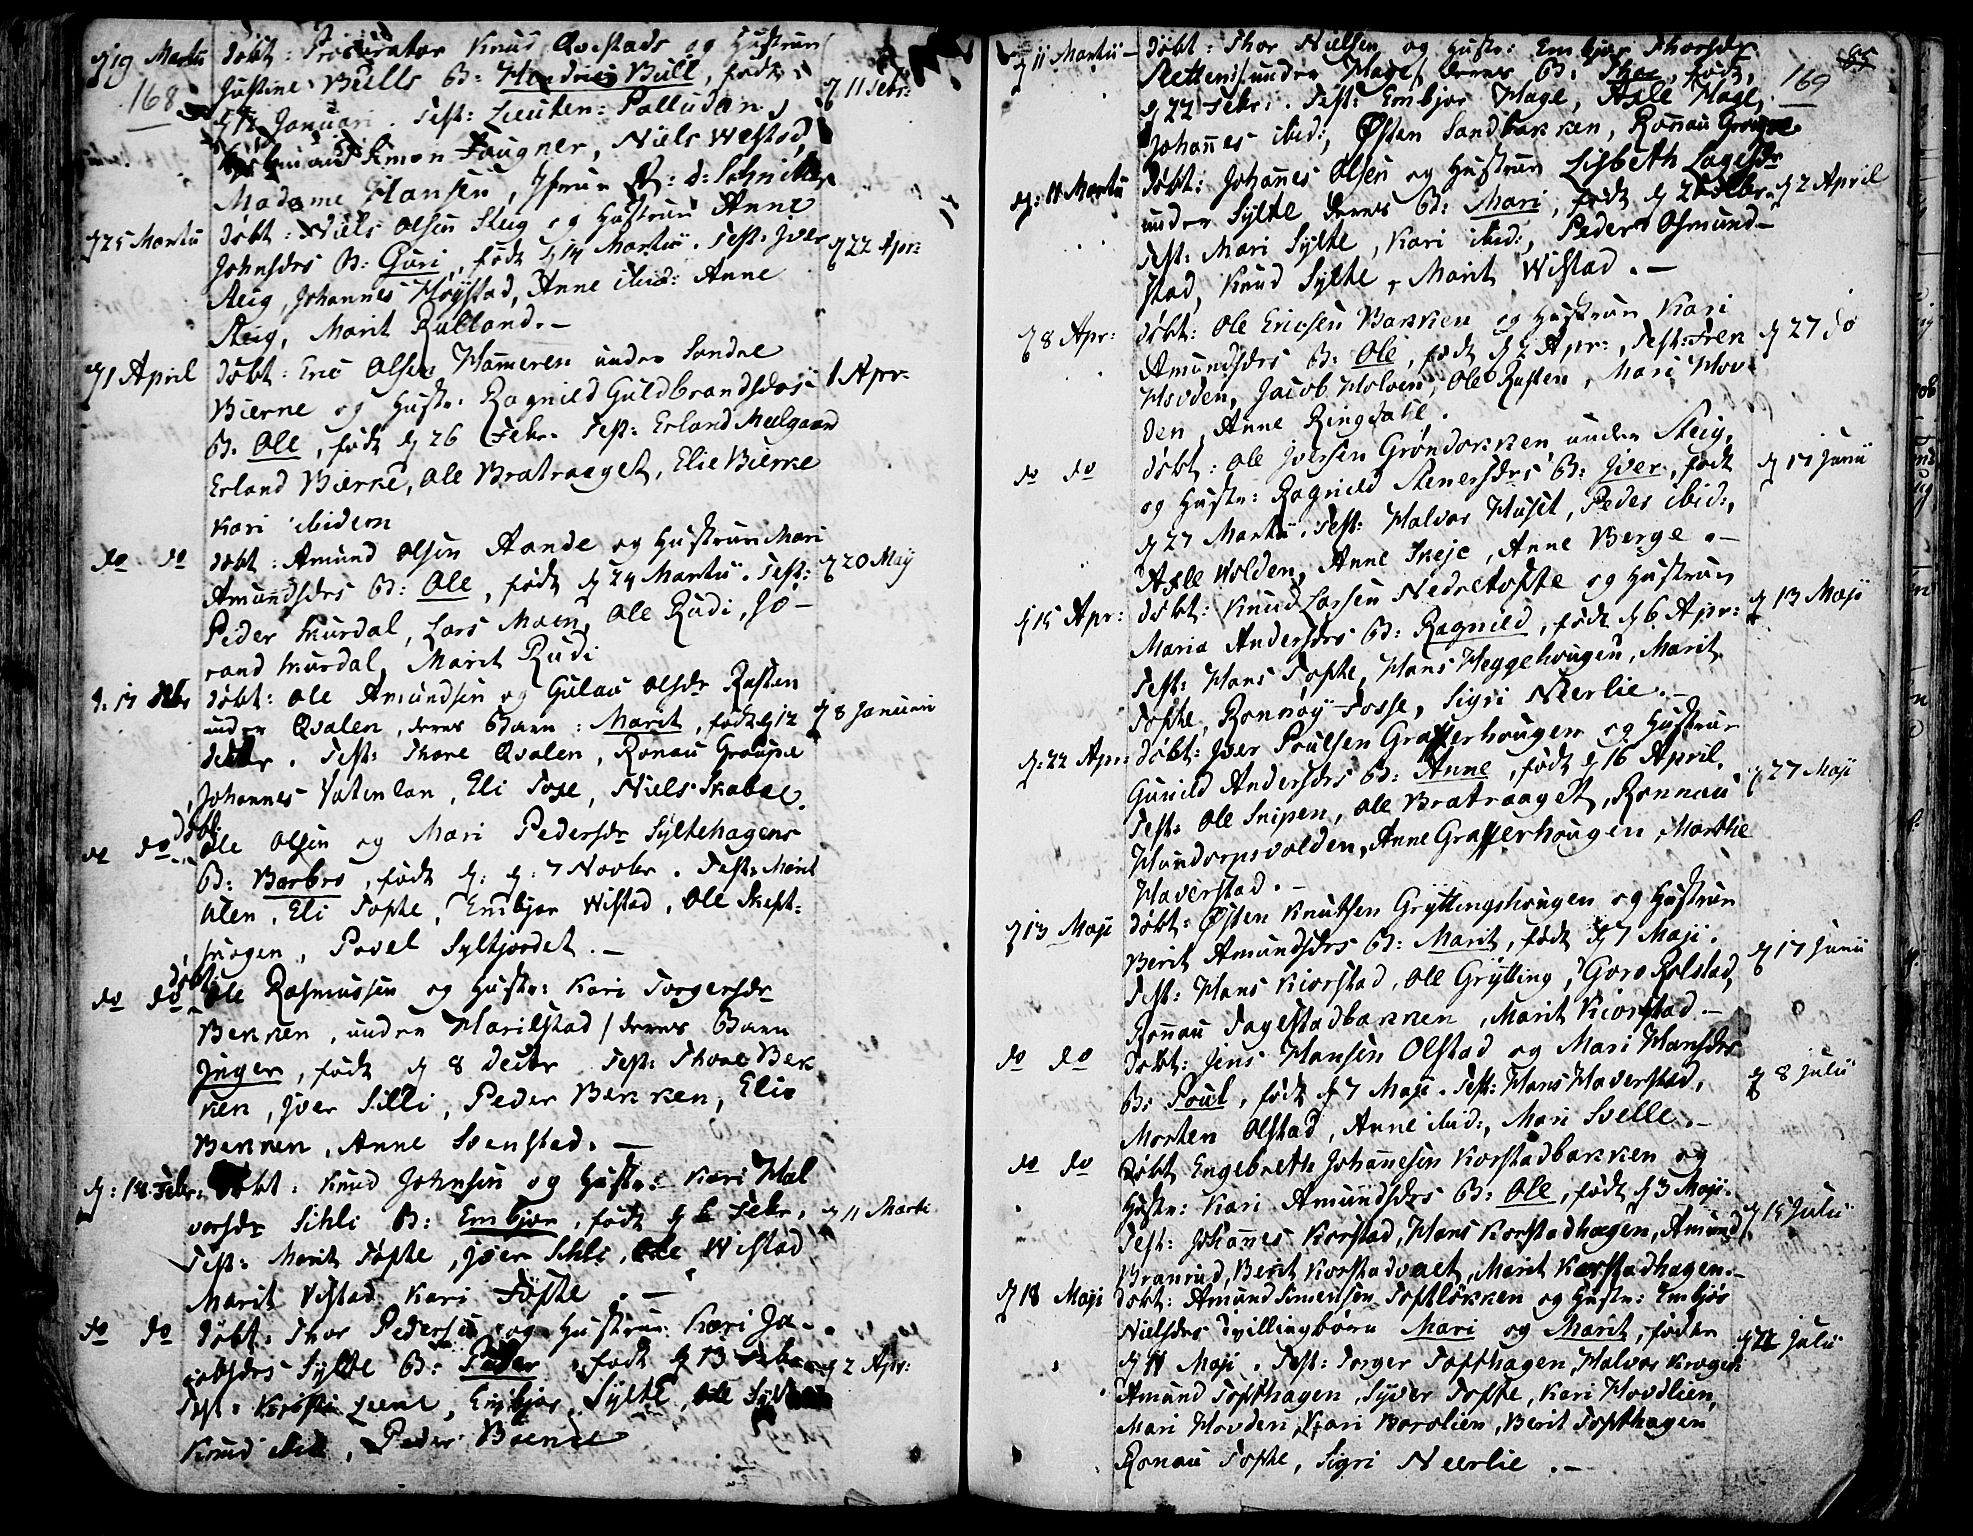 d 19 Martii döbt: Procurator Knud Qvestads og Hustrun
168
Justine Bulls B: Hendrics Bull, födt d 11 Febr:
d 12 Januari. Test: Lieuten: Palludan,
Simon Faugner, Niels Wistad,
Madame Hansen, Jfrue
d 25 Martii döbt: Niels Olsen Steig og Hustrun Anne
Johnsdrs B: Guri, födt d 14 Martii. Test: Jver d 22 Apr:
Steig, Johannes Höystad, Anne ibid: Anne
Steig, Marit Rulland.-
d 1 April döbt: Eric Olsen Hameren under Söndre
Bierne og Hustr. Ragnild Guldbrandsdrs 1 Apr.
B. Ole, födt d 26 Febr. Test: Erland Meelgaard
Erland Bierke, Ole Bratraaget, Elie Bierke
Kari ibidem
do do döbt: Amund Olsen Aande og Hustrun Mari
Amundsdrs B: Ole, födt d 24 Martii. Test: d 20 Maij
Peder Murdal, Lars Moen, Ole Rudi, Jö-
rand Murdal, Marit Rudi
döbt: Ole Amundsen og Gulau Olsdr Rusten
under Qvalen, deres Barn: Marit, födt d 12 d 8 Januari
Decbr. Test: Thore Qvalen, Ronau Groupe
Johannes Vatenlan, Eli Toxe, Niels Skabae.
döbt:
do do Ole Olsen og Mari Pedersdr Syltehagens
B: Barbro, födt d: 7 Novbr. Test: Marit
Alen, Eli Tofte, Embjør Wistad, Ole Skept-
hogen, Povel Syltjordet.-
döbt
do do Ole Rasmussen og Hustr: Kari Torgersdr
Bekken, under Harilstad / deres Barn
Inger, födt d 8 Decbr Test: Thore Bek
ken, Jver Silli, Peder Bekken, Elie
Bekken, Anne Svenstad.-
d: 18 Febr: döbt: Knud Johnsen og Hustr: Kari Hal
vorsdr Sihli B: Embjør, födt d 6 Febr, d 11 Marti
Test: Marit Tofte, Jver Sihli, Ole Wistad
Marit Vistad Kari Tofte.-
do do döbt: Thor Pedersen og Hustrun Kari Ja-
cobsdrs Sylte B: Peder, födt d 13 Febr d 2 Apr:
Test: Kristi Leene, Embjør Sylte, Ole
Knud ibid, Peder Boende

d 11 Martii - döbt: Thor Nielsen og Hustr: Embjør Thorsdr
Stettens / under Hage / deres B: Thor, födt, 169
d 22 Febr:. Test: Embjør Hage, Axle Hage,
Johannes ibid:, Østen Sandbakken, Ronnau Groupe
d: 11 Martii döbt: Johannes Olsen og Hustrun Lisbeth Lagesdr
under Sylte deres B: Mari, födt d 26 Febr. d 2 April
Test: Mari Sylte, Kari ibid:, Peder Osmund-
stad, Knud Sylte, Marit Wistad.-
d 8 Apr: döbt: Ole Ericsen Bakken og Hustrun Kari
Amundsdrs B: Ole, födt d 2 Apr:, Test: Iven d 27 do
Hovden, Jacob Holven, Ole Rusten, Mari Hov-
den, Anne Ringdahl.
do do döbt: Ole Jversen Gröndokken under Steig,
og Hustr: Ragnild Stenersdrs B: Jver, födt d 17 Junii
d 27 Martii. Test: Halvor Huset, Peder ibid:,
Axle Wolden, Anne Skeje, Anne Berge.-
d 15 Apr: döbt: Knud Larsen Nedretofte og Hustrun
Maria Andersdrs B: Ragnild, födt d 6 Apr: d 13 Maji
Test: Hans Tofte, Hans Heggehougen, Marit
Tofte, Ronnøy Fosse, Sigri Neerlie.-
d: 22 Apr: döbt: Jver Poulsen Grafferhougen og Hustrun
Gunild Andersdrs B: Anne, födt d 16 April. d 27 Maji
Test: Ole Snipen, Ole Bratraaget, Ronnau
Hundorpsvolden, Anne Grafferhougen, Marthe
Haverstad.-
d 13 Maji döbt: Østen Knutsen Gryttingshougen og Hustrun
Berit Amundsdrs B: Marit, födt d 7 Maji. d 17 Junii
Test: Hans Kiorstad, Ole Grytting, Goro Rolstad,
Ronnau Fagestadbakken, Marit Kiorstad.-
do do döbt: Jens Hansen Olstad og Mari Hansdrs
B: Poul, födt d 7 Maji. Test: Hans Haverstad, d 8 Julii
Morten Olstad, Anne ibid:, Mari Svelle.-
do do döbt Engebreth Johannesen Korstadbakken og
Hustr: Kari Amundsdrs B: Ole, födt d 3 Maji.
Test: Johannes Korstad, Hans Korstadhagen, Amund d 15 Julii
Branrud, Berit Korstadvaet, Marit Korstadhagen.-
d 18 Maji döbt: Amund Simensen Toftlökken og Hustr: Embjør
Nielsdrs tvillingbörn Mari og Marit, födde d 22 Julii
d 11 Maji. Test: Torger Tofthagen, Halvor Krogen
Amund Tofthagen, Syver Tofte, Kari Hovdlien,
Mari Hovden, Kari Borvlien, Berit Tofthagen
Ronau Tofte, Sigri Neerlie.-